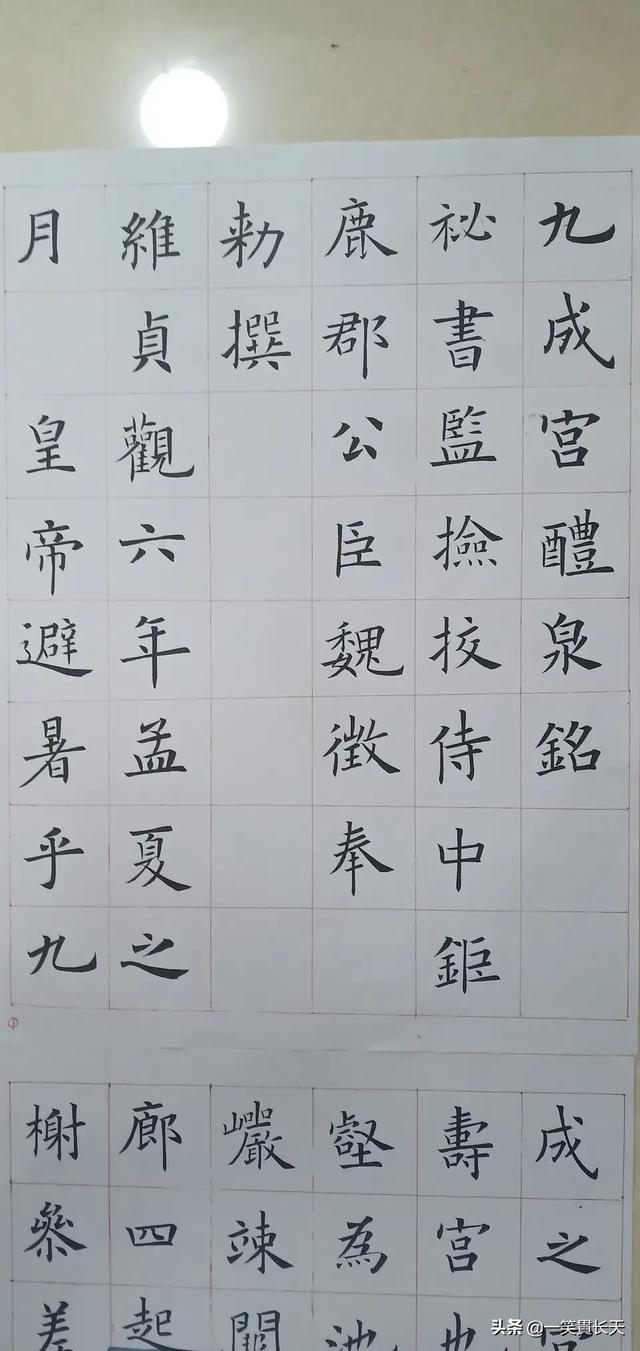 九成宮醴泉銘
祕書監撿挍侍中鉅
鹿郡公臣魏徵奉
勅撰
維貞觀六年孟夏之
月 皇帝避暑乎九
成之宮
壽宮也
壑為池
巖竦闕
廊四起
榭參差
头条 @一笑貫长天